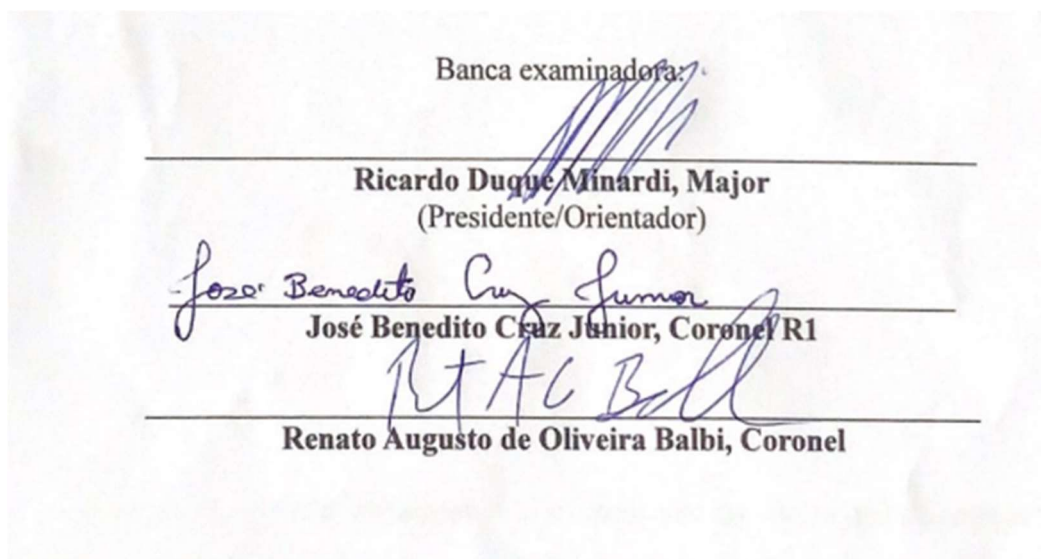 Banca examinadora:
Ricardo Duque Minardi, Major
(Presidente/Orientador)
José Benedito Cruz Junior
José Benedito Cruz Júnior, Coronel R1
Renato Augusto de Oliveira Balbi, Coronel